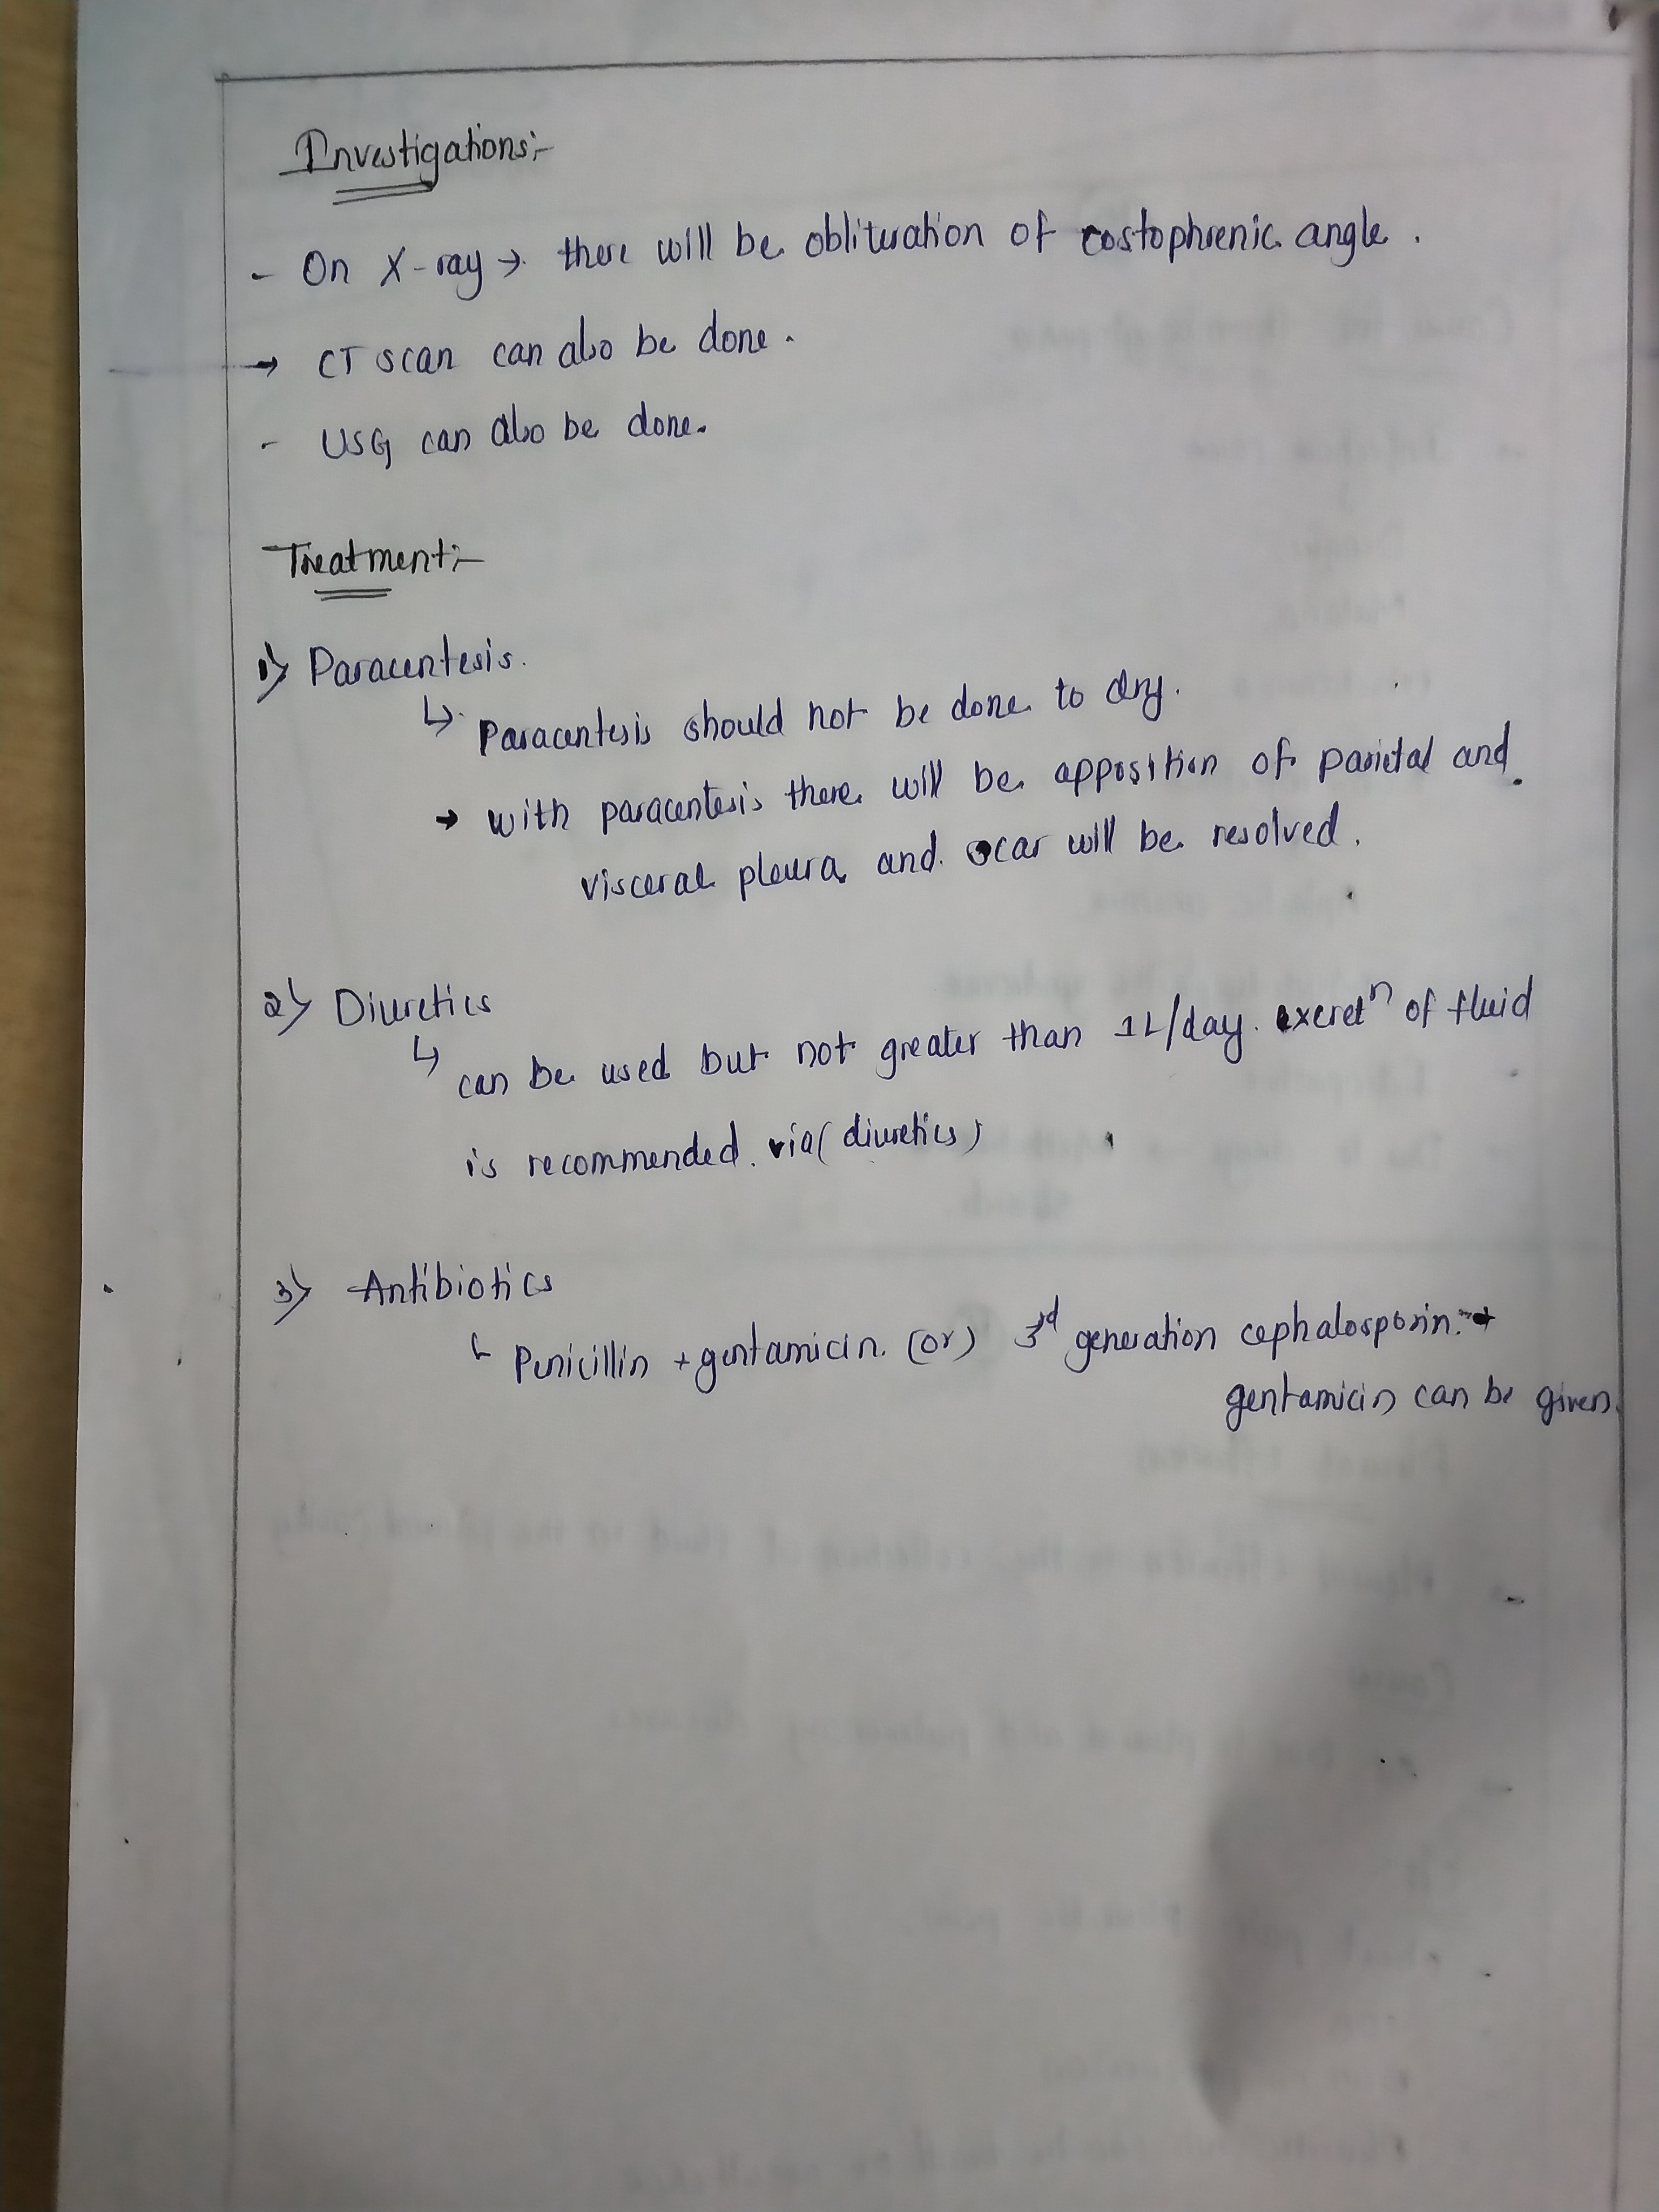 Investigations:-
- On X-ray → there will be obliteration of costophrenic angle.
→ CT scan can also be done.
- USG can also be done.
Treatment:-
1) Paracentesis.
↳ Paracentesis should not be done to dry.
→ with paracentesis there will be apposition of parietal and
visceral pleura and scar will be resolved.
2) Diuretics
↳ can be used but not greater than 1L/day. excretⁿ of fluid
is recommended. via (diuretics)
3) Antibiotics
↳ Penicillin + gentamicin. (or) 3rd generation cephalosporin. +
gentamicin can be given.